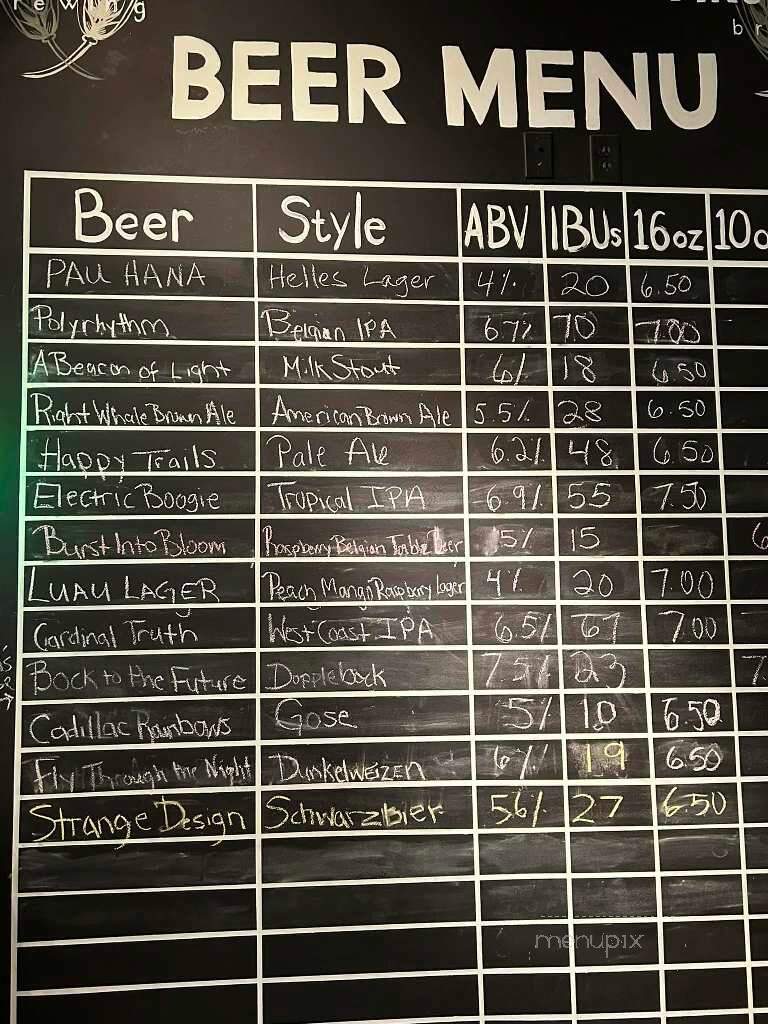 rewing
br
BEER MENU
Beer Style ABV IBUs 16oz 10o
PAU HANA Helles Lager 4% 20 6.50
Polyrhythm Belgian IPA 6.7% 70 7.00
A Beacon of Light Milk Stout 6% 18 6.50
Right Whale Brown Ale American Brown Ale 5.5% 28 6.50
Happy Trails Pale Ale 6.2% 48 6.50
Electric Boogie Tropical IPA 6.9% 55 7.50
Burst Into Bloom Raspberry Belgian Table Beer 5% 15 6
LUAU LAGER Peach Mango Raspberry Lager 4% 20 7.00
Cardinal Truth West Coast IPA 6.5% 67 7.00
Bock to the Future Dopplebock 7.5% 23 7.
Cadillac Rainbows Gose 5% 10 6.50
Fly Through the Night Dunkelweizen 6% 19 6.50
Strange Design Schwarzbier 5.6% 27 6.50
menupix